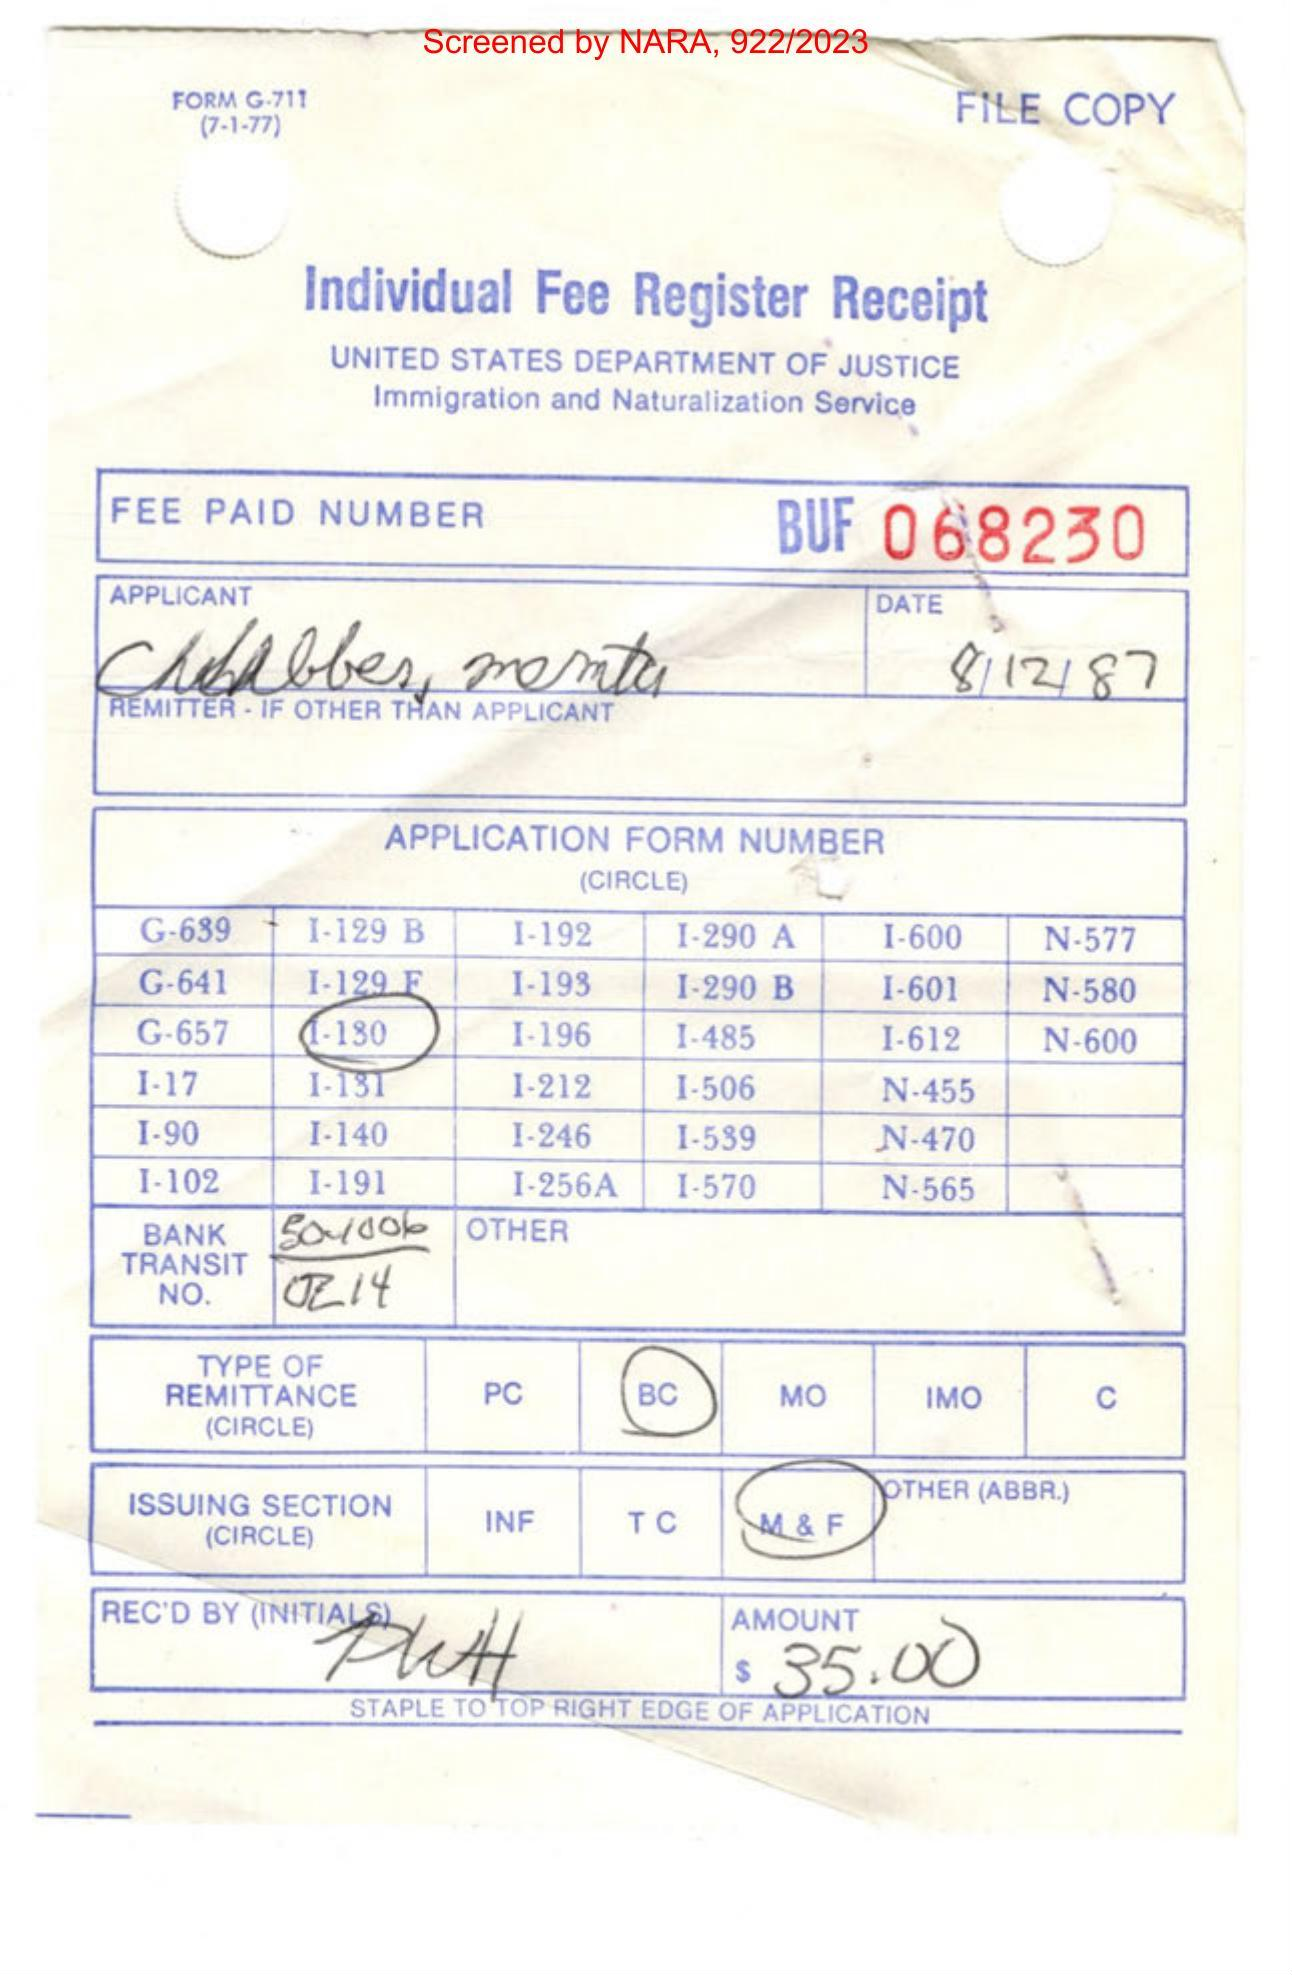 Screened by NARA, 922/2023
FORM G-711
(7-1-77)
FILE COPY
Individual Fee Register Receipt
UNITED STATES DEPARTMENT OF JUSTICE
Immigration and Naturalization Service
FEE PAID NUMBER BUF 068230
APPLICANT
DATE
8/12/87
REMITTER - IF OTHER THAN APPLICANT
APPLICATION FORM NUMBER
(CIRCLE)
G-639 I-129 B I-192 I-290 A I-600 N-577
G-641 I-129 F I-193 I-290 B I-601 N-580
G-657 I-130 I-196 I-485 I-612 N-600
I-17 I-131 I-212 I-506 N-455
I-90 I-140 I-246 I-539 N-470
I-102 I-191 I-256A I-570 N-565
BANK
TRANSIT
NO.
OTHER
TYPE OF
REMITTANCE
(CIRCLE)
PC BC MO IMO C
ISSUING SECTION
(CIRCLE)
INF T C M & F
OTHER (ABBR.)
REC'D BY (INITIALS)
PWH
AMOUNT
$ 35.00
STAPLE TO TOP RIGHT EDGE OF APPLICATION